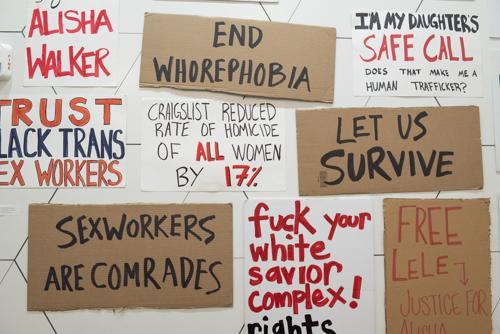 ALISHA
WALKER
END
WHOREPHOBIA
IM MY DAUGHTER'S
SAFE CALL
DOES THAT MAKE ME A
HUMAN TRAFFICKER?
TRUST
LACK TRANS
EX WORKERS
CRAIGSLIST REDUCED
RATE OF HOMICIDE
OF ALL WOMEN
BY 17%
LET US
SURVIVE
SEXWORKERS
ARE COMRADES
fuck your
white
savior
complex!
rights
FREE
LELE
JUSTICE FOR
ALISHA